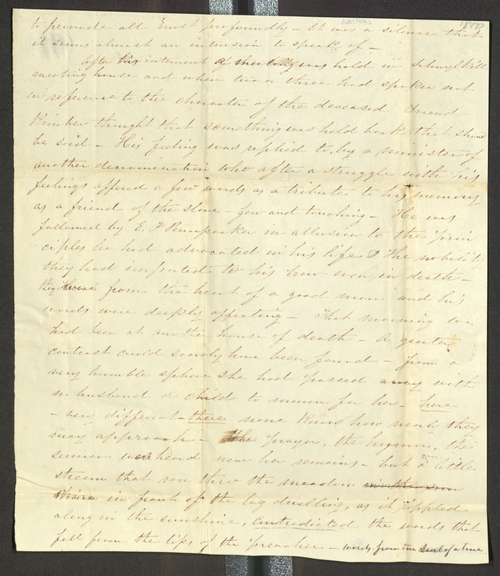 to pervade all most profoundly – It was a silence that
it seems almost an intrusion to speak of –
After his interment a meeting was held in Schuylkill
meeting house and when two or three had spoken not
in reference to the character of the deceased
Kimber thought that something was held back that should
be said – His feeling was replied to, by a minister of
another denomination who after a struggle with his
feelings offered a few words as a tribute to his memory
as a friend of the slave – few and touching – He was
followed by E F Pennypacker in allusion to the prin
ciples he had advocated in his life & the nobility
they had imparted to his brow even in death –
they were from the heart of a good man and his
words were deeply affecting – That morning we
had been at another house of death – A greater
contrast could scarcely have been found – from a
very humble sphere she had passed away with
no husband or child to mourn for her – here
– very different – there none knew how nearly they
may approach – The prayer, the hymn, the
sermon were heard near her remains – but a little
stream that ran thro the meadow
in front of the log dwelling, as it rippled
along in the sunshine, contradicted the words that
fell from the lips of the preacher – words from the soul of a true